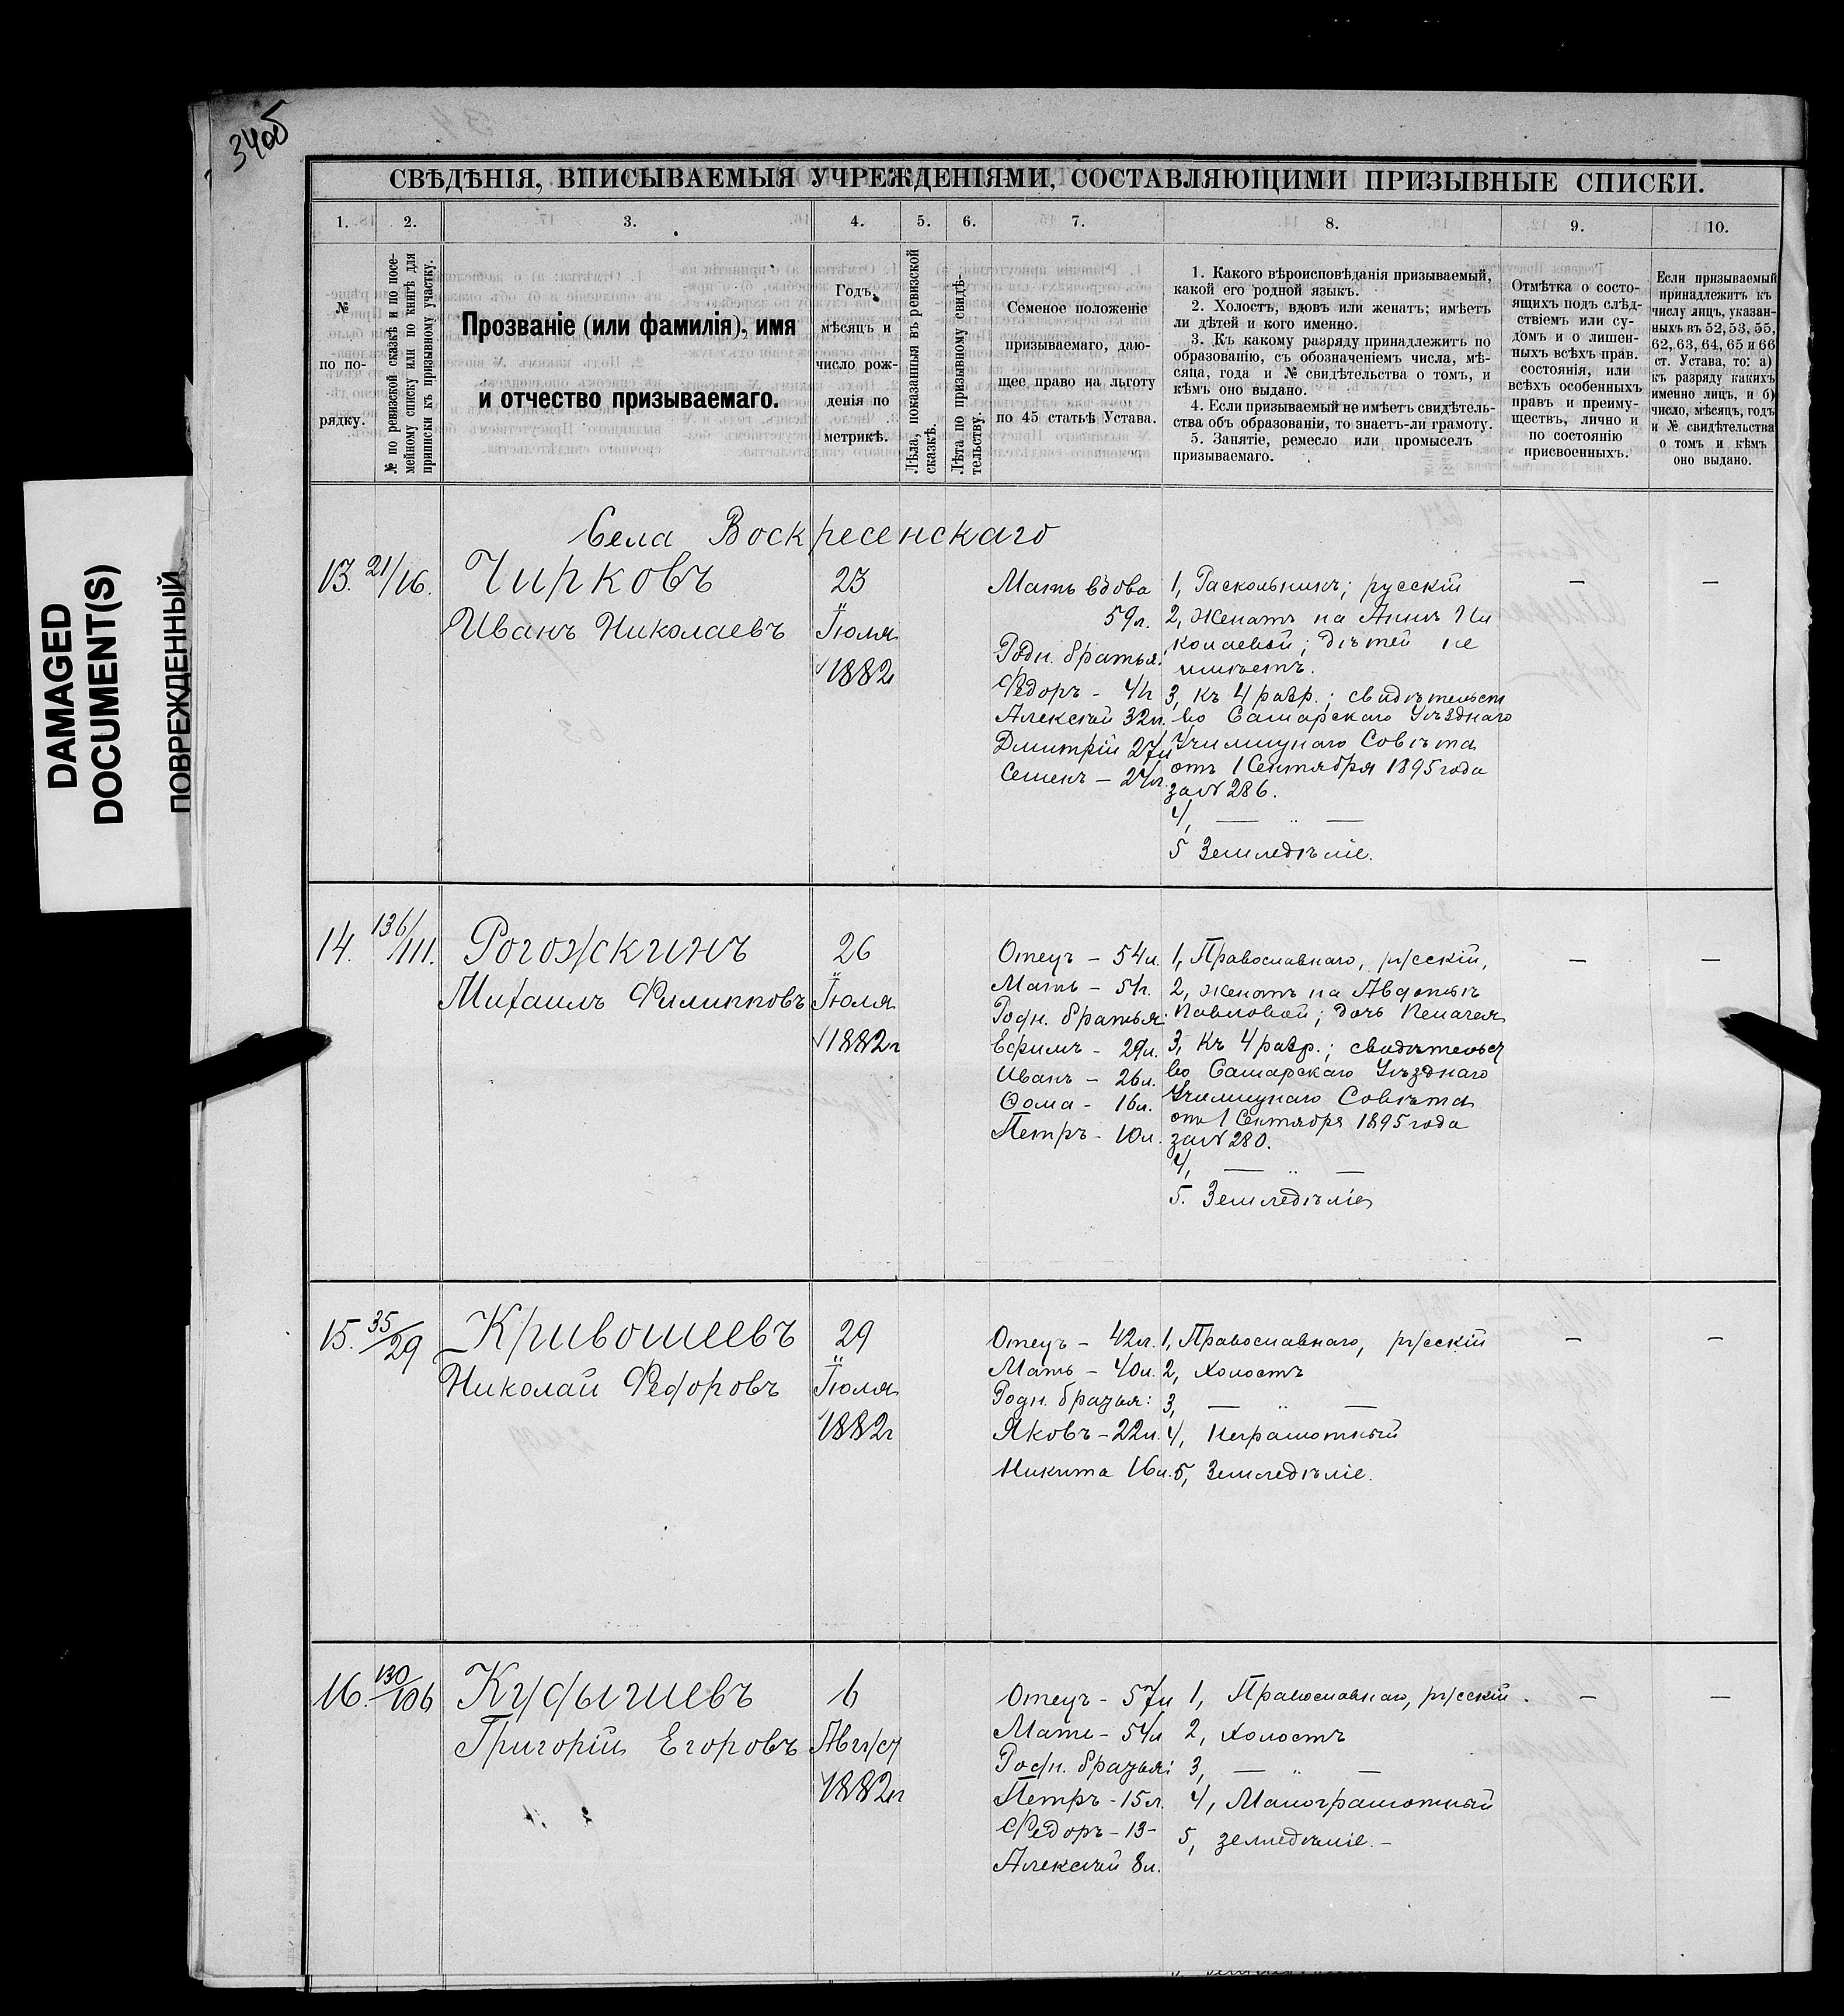 34об
DAMAGED
DOCUMENT(S)
ПОВРЕЖДЕННЫЙ
СВѢДѢНІЯ, ВПИСЫВАЕМЫЯ УЧРЕЖДЕНІЯМИ, СОСТАВЛЯЮЩИМИ ПРИЗЫВНЫЕ СПИСКИ.
1. 2. 3. 4. 5. 6. 7. 8. 9. 10.
№
по по-
рядку.
№ по ревизской сказкѣ и по посе-
мейному списку или по книгѣ для
приписки къ призывному участку.
Прозваніе (или фамилія), имя
и отчество призываемаго.
Годъ,
мѣсяцъ и
число рож-
денія по
метрикѣ.
Лѣта, показанныя въ ревизской
сказкѣ.
Лѣта по призывному свидѣ-
тельству.
Семеное положеніе
призываемаго, даю-
щее право на льготу
по 45 статьѣ Устава.
1. Какого вѣроисповѣданія призываемый,
какой его родной языкъ.
2. Холостъ, вдовъ или женатъ; имѣетъ
ли дѣтей и кого именно.
3. Къ какому разряду принадлежитъ по
образованію, съ обозначеніемъ числа, мѣ-
сяца, года и № свидѣтельства о томъ, и
кѣмъ оно выдано.
4. Если призываемый не имѣетъ свидѣтель-
ства объ образованіи, то знаетъ-ли грамоту.
5. Занятіе, ремесло или промыселъ
призываемаго.
Отмѣтка о состо-
ящихъ подъ слѣд-
ствіемъ или су-
домъ и о лишен-
ныхъ всѣхъ прав.
состоянія, или
всѣхъ особенныхъ
правъ и преиму-
ществъ, лично и
по состоянію
присвоенныхъ.
Если призываемый
принадлежитъ къ
числу лицъ, указан-
ныхъ въ 52, 53, 55,
62, 63, 64, 65 и 66
ст. Устава, то: а)
къ разряду какихъ
именно лицъ, и б)
число, мѣсяцъ, годъ
и № свидѣтельства
о томъ и кѣмъ
оно выдано.
Села Воскресенскаго
13. 21/16.
Чирковъ
Иванъ Николаевъ
23
Іюля
1882
Мать вдова
59л.
Родн. братья:
Ѳедоръ - 41г
Алексѣй 32л.
Дмитрій 27л
Семенъ - 24л.
1, Раскольникъ; русскій
2, женатъ на Аннѣ Ни
колаевой; дѣтей не
имѣетъ.
3, къ 4 разр.; свидѣтельст
во Самарскаго Уѣзднаго
Училищнаго Совѣта
отъ 1 Сентября 1895 года
за № 286.
4, — " —
5 Земледѣліе.
—
—
14. 136/111.
Рогожкинъ
Михаилъ Филипповъ
26
Іюля
1882г
Отецъ - 54л.
Мать - 51г.
Родн. братья:
Ефимъ - 29л.
Иванъ - 26л.
Ѳома - 16л.
Петръ - 10л.
1, Православнаго, русскій,
2, женатъ на Авдотьѣ
Павловой; дочь Пелагея
3, къ 4 разр.; свидѣтельст
во Самарскаго Уѣзднаго
Училищнаго Совѣта
отъ 1 Сентября 1895 года
за № 280.
4, — " —
5. Земледѣліе
—
—
15. 35/29
Кривошеевъ
Николай Федоровъ
29
Іюля
1882г
Отецъ - 42л.
Мать - 40л.
Родн. братья:
Яковъ - 22л.
Никита 16л.
1, Православнаго, русскій
2, холостъ
3, — " —
4, Неграмотный
5, Земледѣліе.
—
—
16. 130/106
Григорій Егоровъ
6
Август
1882г
Отецъ - 57л
Мать - 54л
Родн. братья:
Петръ - 15л.
Ѳедоръ - 13-
Алексѣй 8л.
1, Православнаго, русскій.
2, холостъ
3, — " —
4, Малограмотный
5, земледѣліе. -
—
—